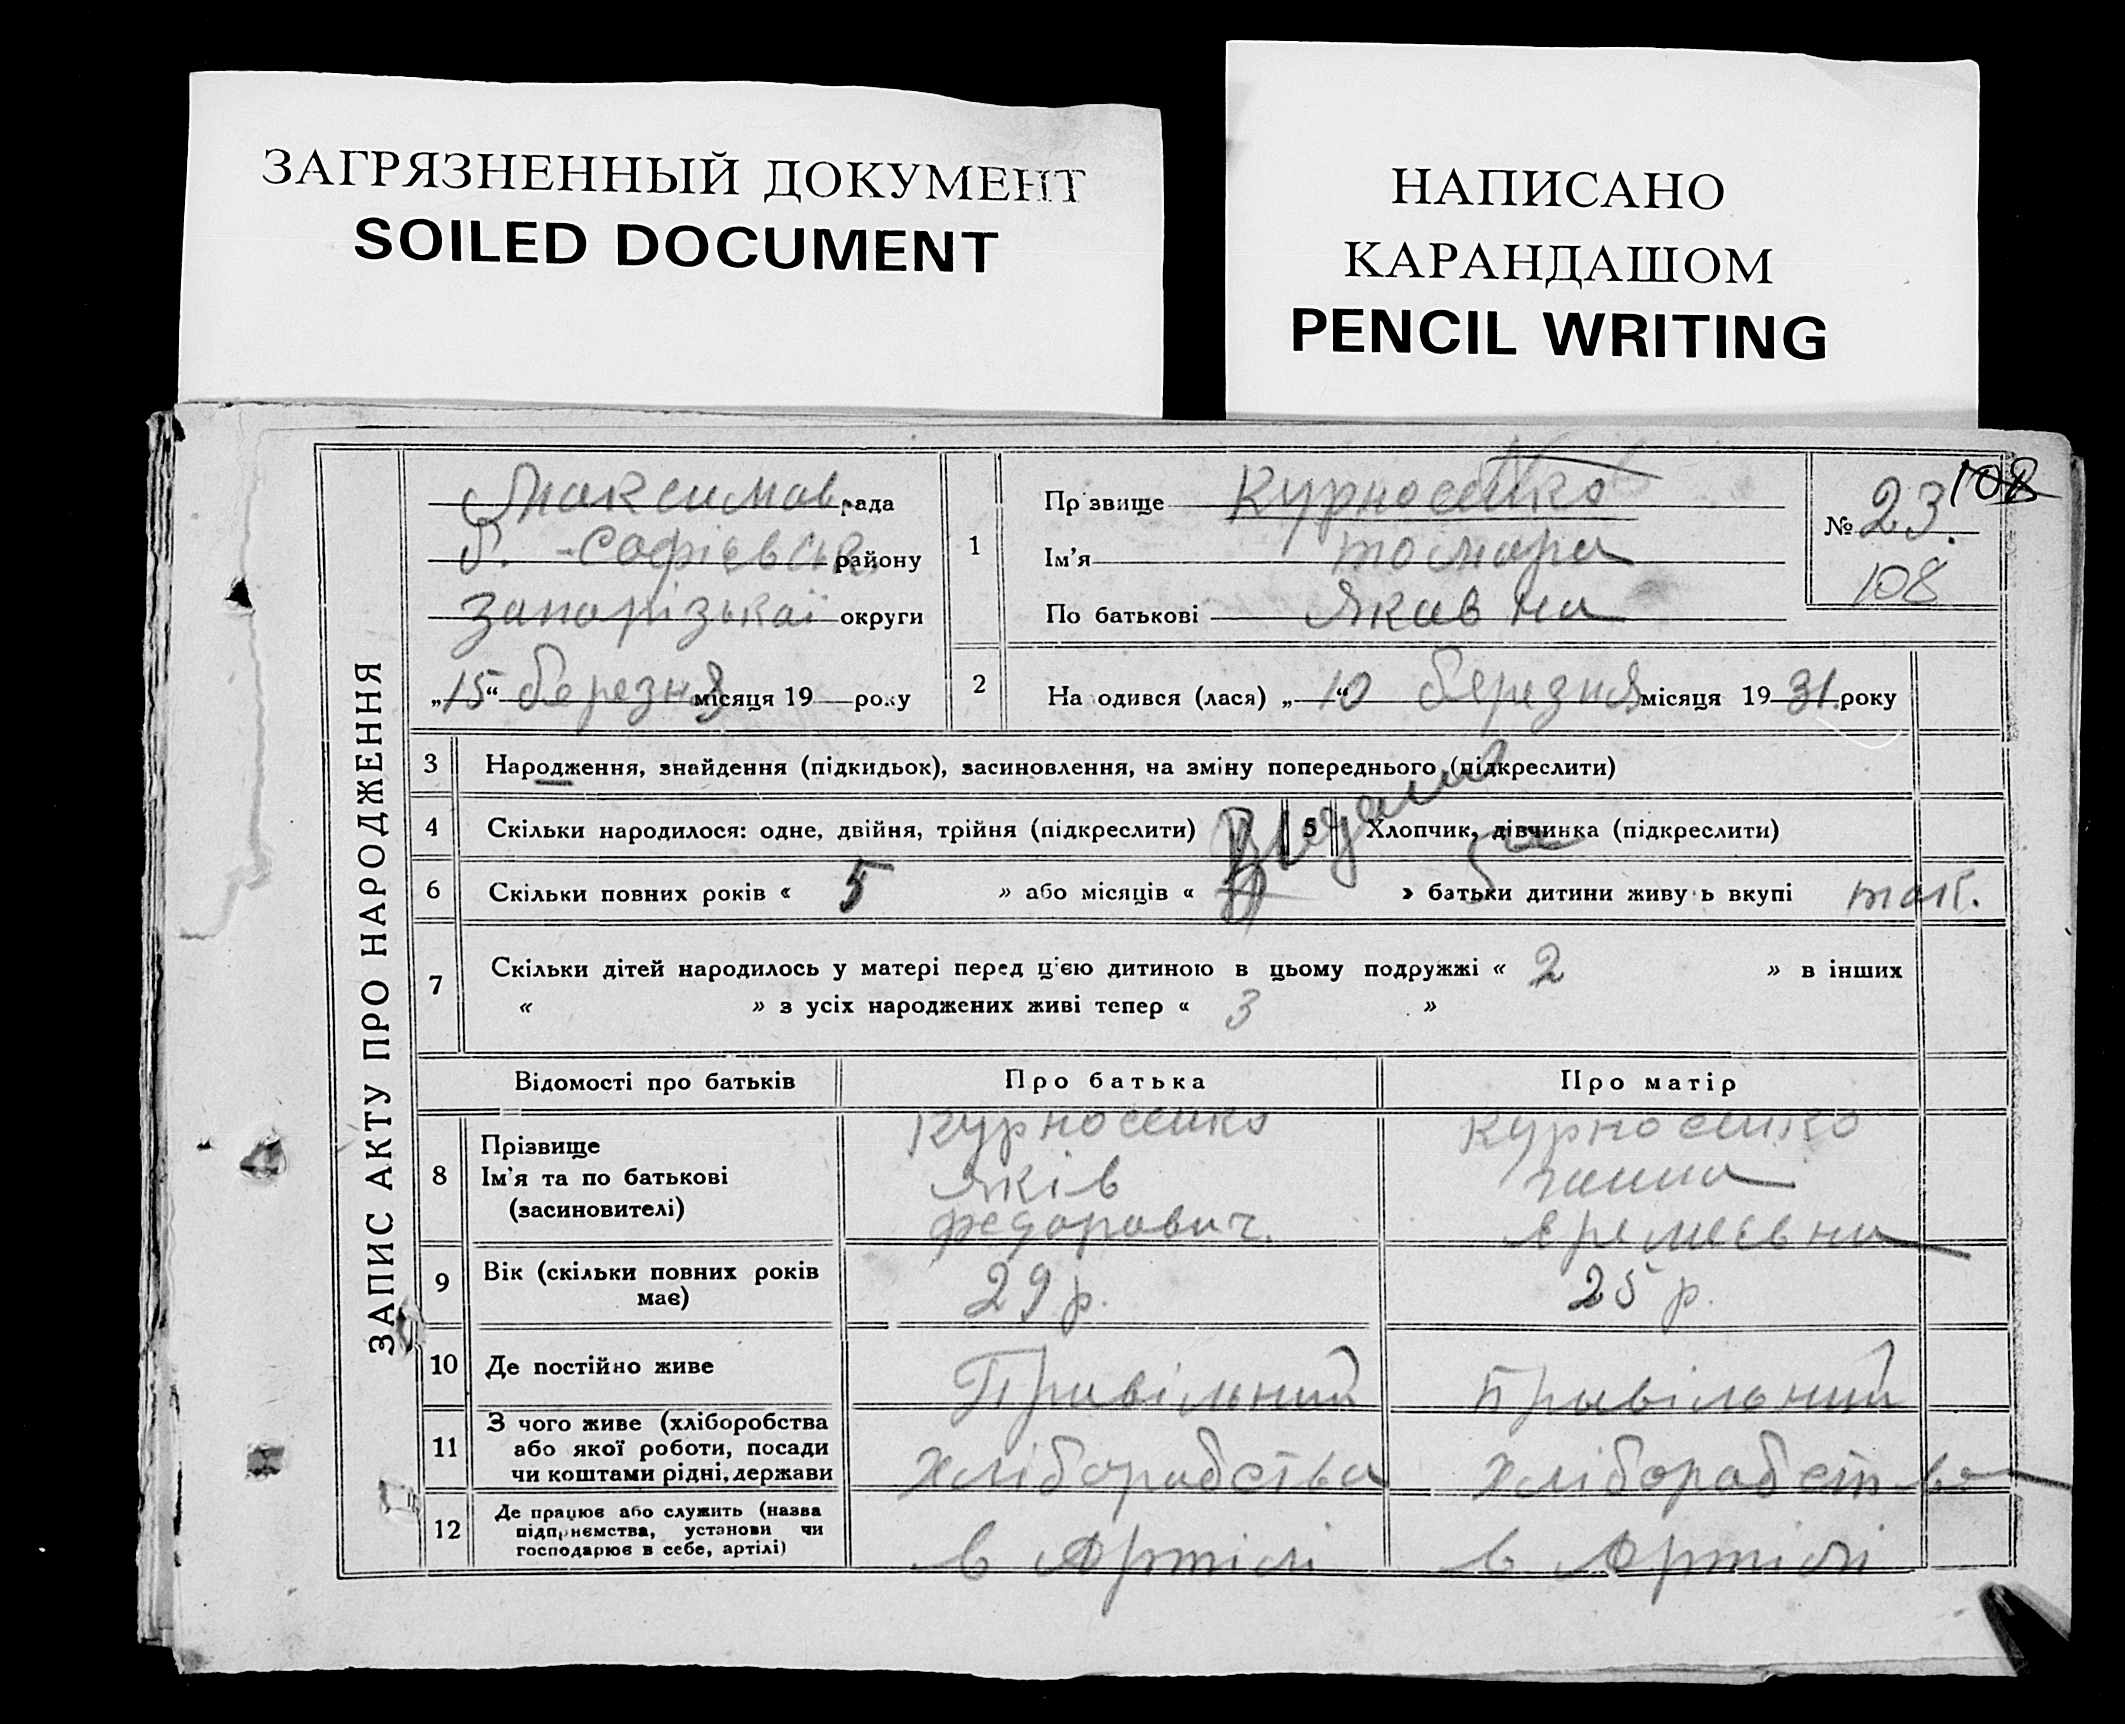 ЗАГРЯЗНЕННЫЙ ДОКУМЕНТ
SOILED DOCUMENT
НАПИСАНО
КАРАНДАШОМ
PENCIL WRITING
ЗАПИС АКТУ ПРО НАРОДЖЕННЯ
Максимов рада
б. -Софієвськ району
Запорізькаї округи
„15“ березня місяця 19 року
1
Прізвище Курносенко
Ім'я тамара
По батькові Яківна
№ 23. 108
108
2 На одився (лася) „10“ березня місяця 19 31 року
3 Народження, знайдення (підкидьок), засиновлення, на зміну попереднього (підкреслити)
4 Скільки народилося: одне, двійня, трійня (підкреслити) 5 Хлопчик, дівчинка (підкреслити)
6 Скільки повних років « 5 » або місяців « » батьки дитини живуть вкупі так.
7 Скільки дітей народилось у матері перед цією дитиною в цьому подружжі « 2 » в інших
« » з усіх народжених живі тепер « 3 »
Відомості про батьків Про батька Про матір
8 Прізвище Курносенко Курносенко
Ім'я та по батькові Яків ганна
(засиновителі) федорович. Еремеєвна
9 Вік (скільки повних років має) 29 р. 25 р.
10 Де постійно живе Правільний Правільний
11 З чого живе (хліборобства
або якої роботи, посади
чи коштами рідні, держави Хліборабства Хліборабства
12 Де працює або служить (назва
підприємства, установи чи
господарює в себе, артілі) в Артілі в Артілі